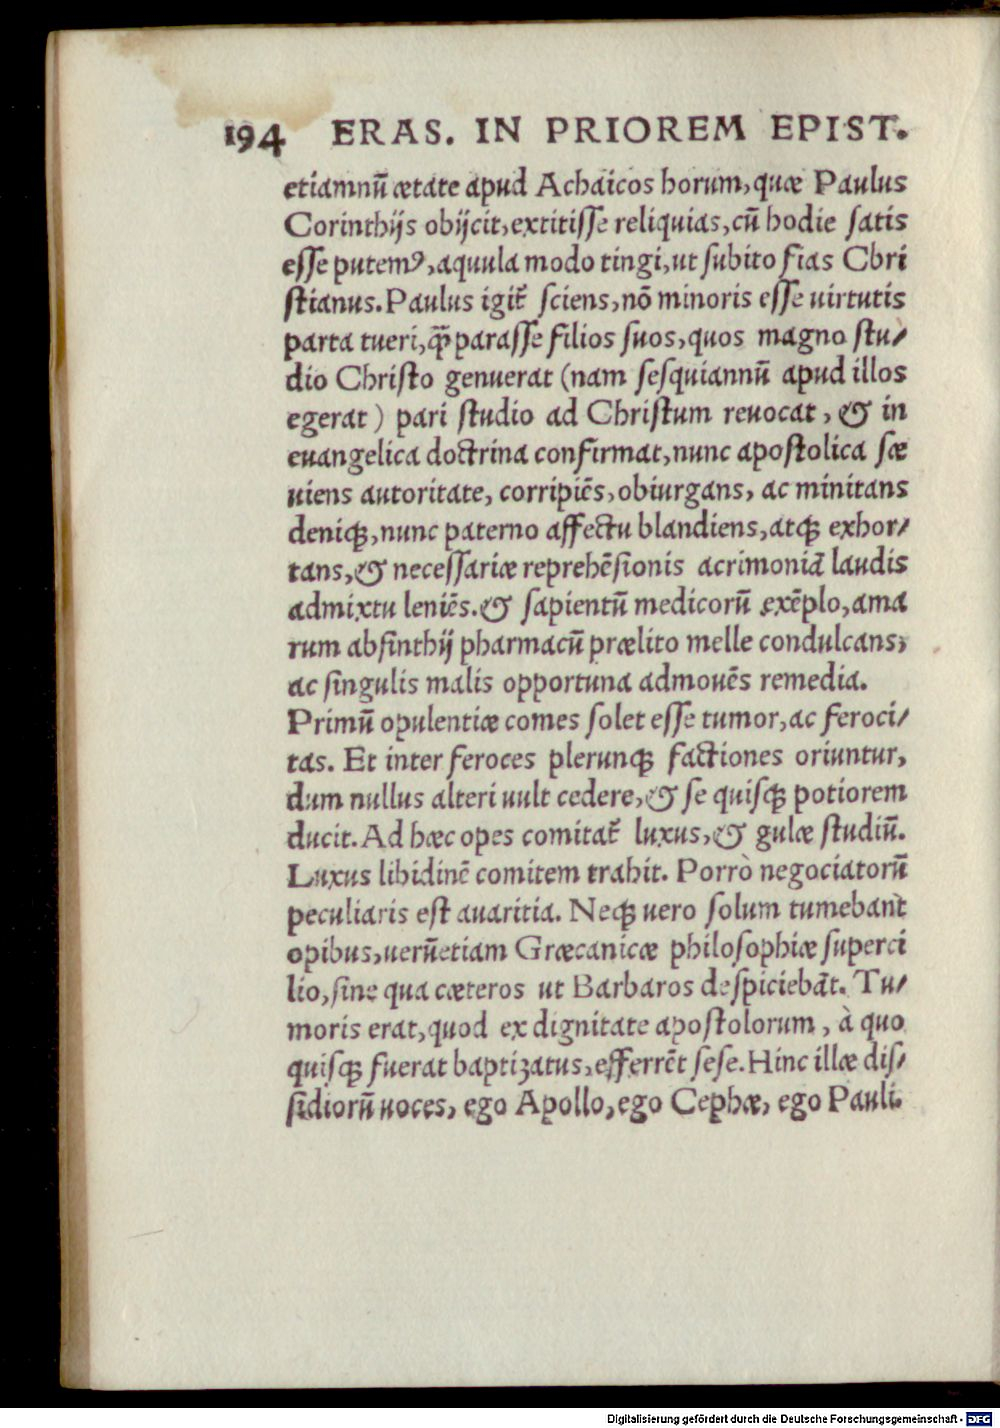 194 ERAS. IN PRIOREM EPIST.
etiamnū ætate apud Achaicos horum, quæ Paulus
Corinthijs obijcit, extitiſſe reliquias, cū hodie ſatis
eſſe putemꝰ, aquula modo tingi, ut ſubito fias Chri
ſtianus. Paulus igit᷑ ſciens, nō minoris eſſe uirtutis
parta tueri, q̃ꝫ paraſſe filios ſuos, quos magno ſtu/
dio Chriſto genuerat (nam ſeſquiannū apud illos
egerat) pari ſtudio ad Chriſtum reuocat, & in
euangelica doctrina confirmat, nunc apoſtolica ſæ
uiens autoritate, corripiēs, obiurgans, ac minitans
deniqꝫ, nunc paterno affectu blandiens, atqꝫ exhor/
tans, & neceſſariæ reprehēſionis acrimoniā laudis
admixtu leniēs. & ſapientū medicorū exēplo, ama
rum abſinthij pharmacū prælito melle condulcans,
ac ſingulis malis opportuna admouēs remedia.
Primū opulentiæ comes ſolet eſſe tumor, ac feroci/
tas. Et inter feroces plerunqꝫ factiones oriuntur,
dum nullus alteri uult cedere, & ſe quiſqꝫ potiorem
ducit. Ad hæc opes comitat᷑ luxus, & gulæ ſtudiū.
Luxus libidinē comitem trahit. Porrò negociatorū
peculiaris eſt auaritia. Neqꝫ uero ſolum tumebant
opibus, uerūetiam Græcanicæ philoſophiæ ſuperci
lio, ſine qua cæteros ut Barbaros deſpiciebāt. Tu/
moris erat, quod ex dignitate apoſtolorum, à quo
quiſqꝫ fuerat baptizatus, efferrēt ſeſe. Hinc illæ diſ/
ſidiorū uoces, ego Apollo, ego Cephæ, ego Pauli.
Digitalisierung gefördert durch die Deutsche Forschungsgemeinschaft - DFG